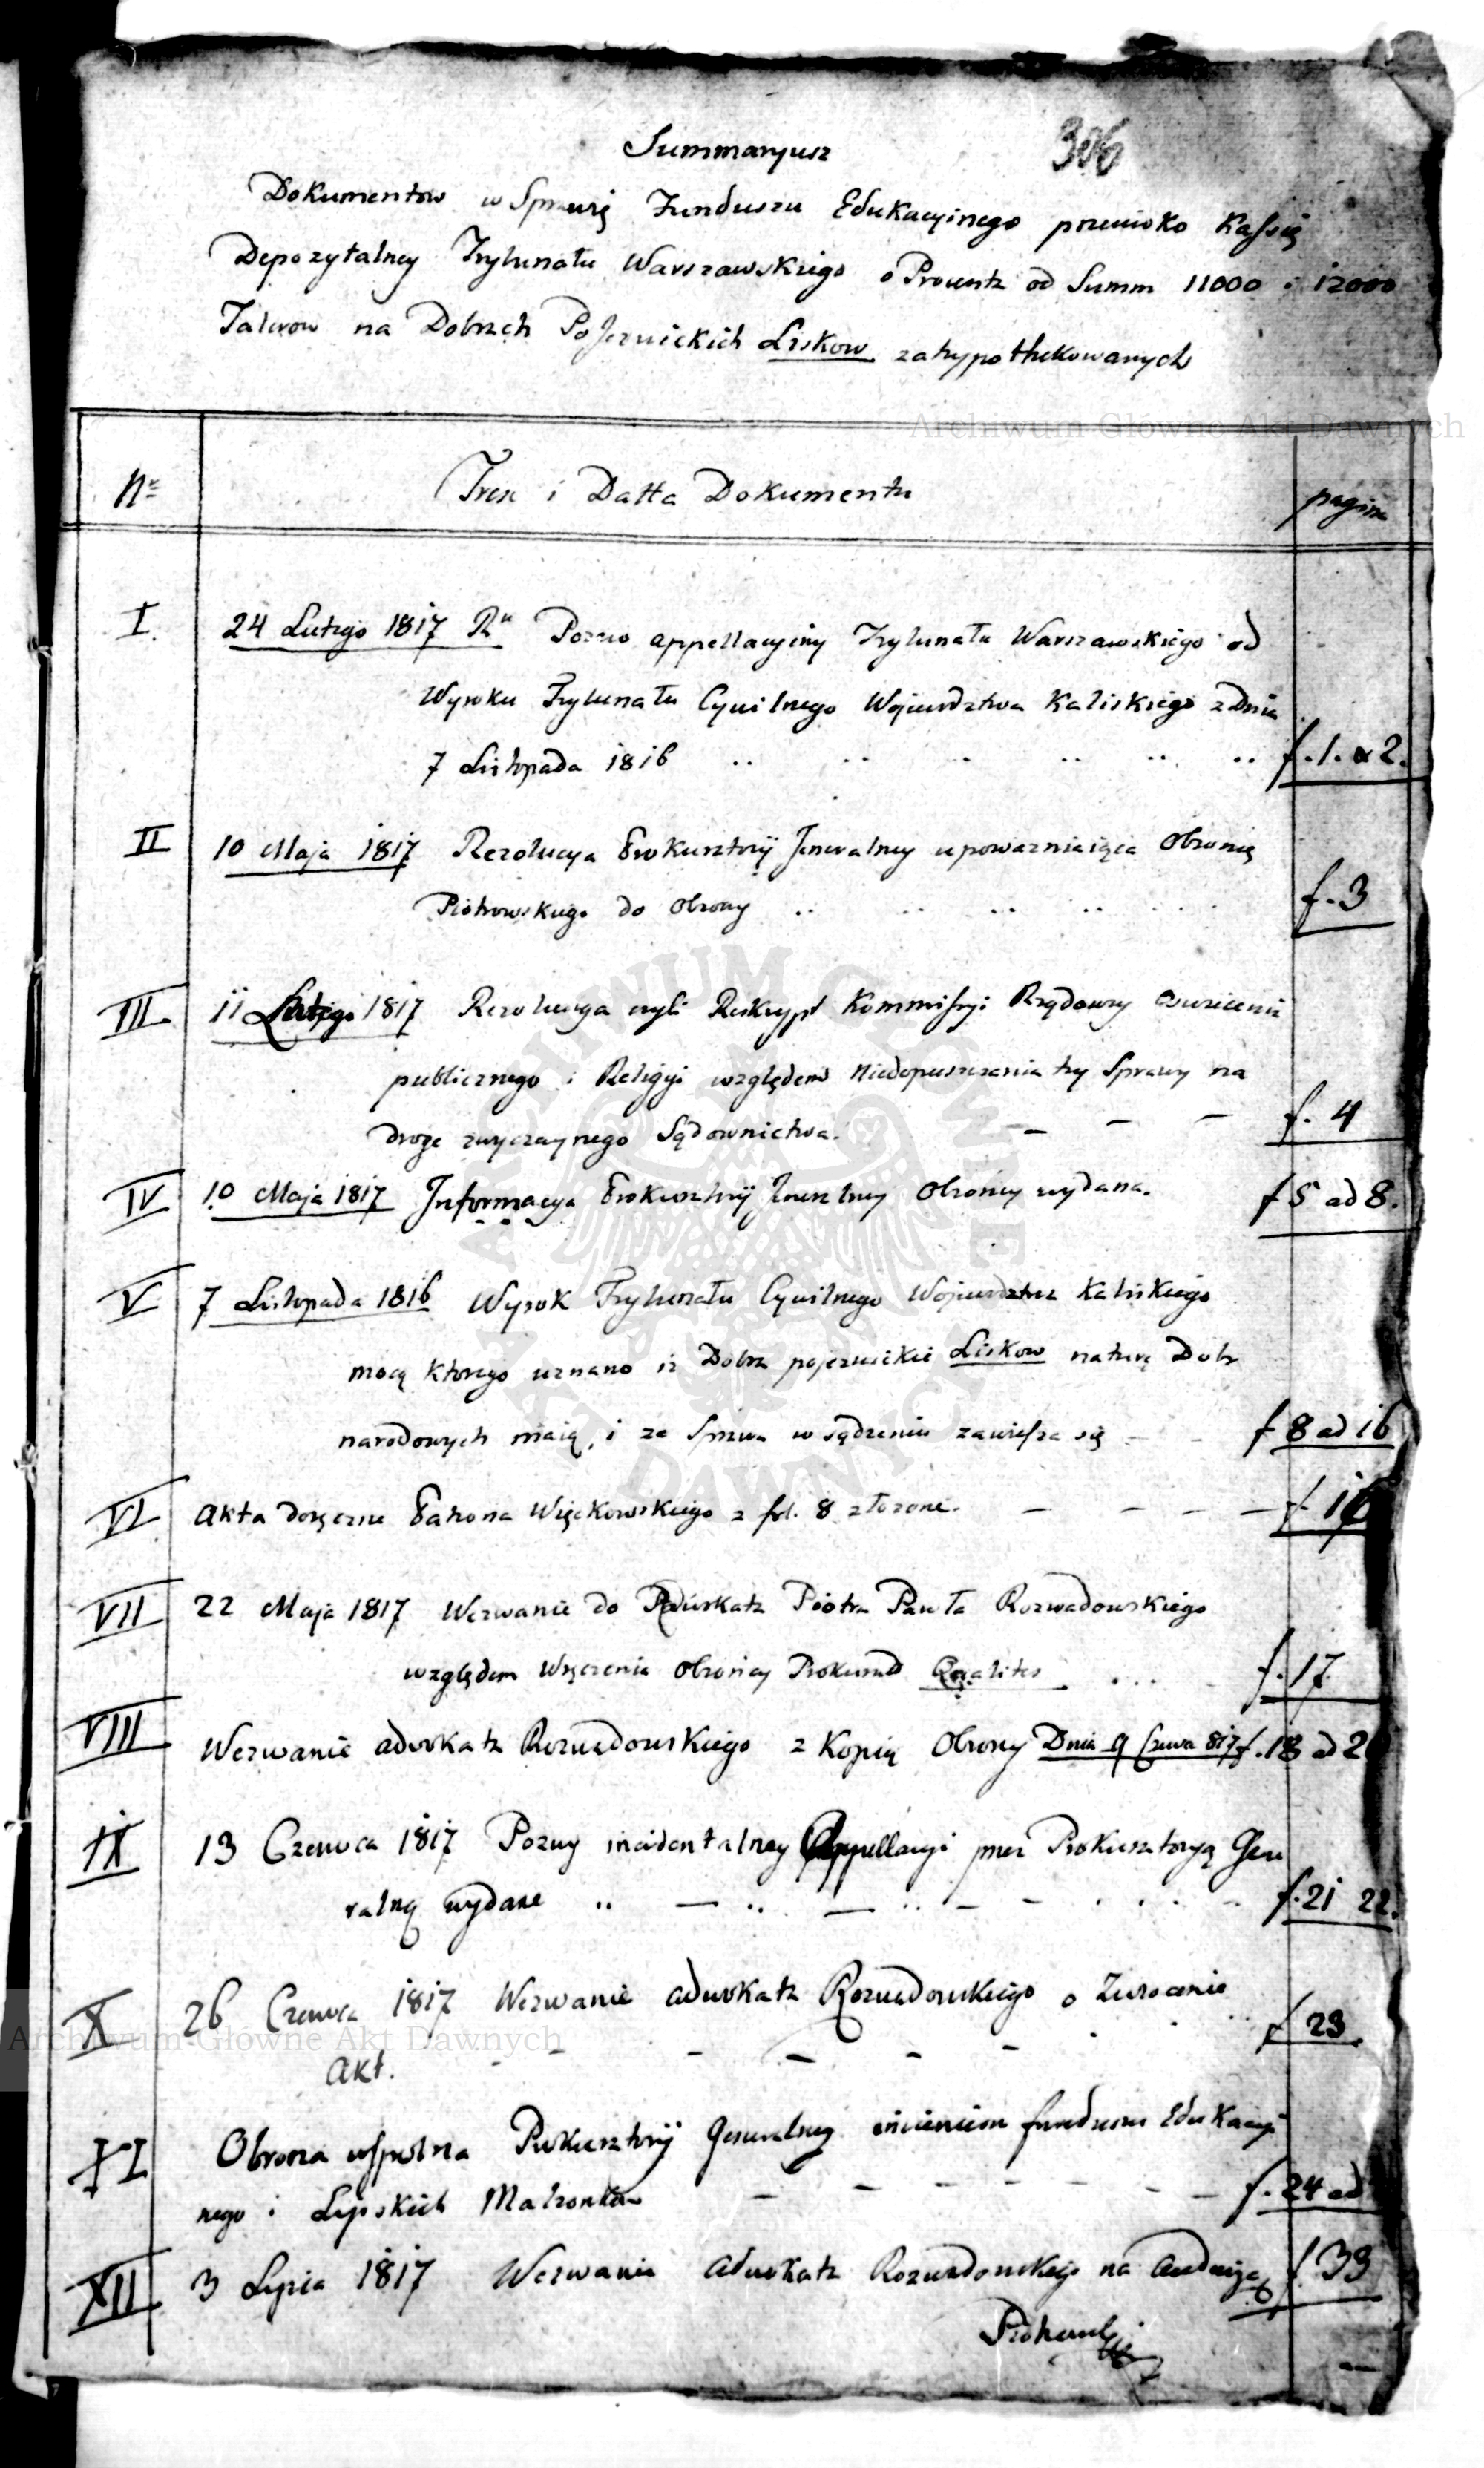 306
Summaryusz
Dokumentow w Sprawię Funduszu Edukacyinego przeciwko Kassię
Depozytalney Trybunału Warszawskiego o Procenta od Summ 11000 i 12000
Talerow na Dobrach Pojezuickich Liskow zahypothekowanych
Nr
Tresc i Datta Dokumentu
pagina
I.
24 Lutego 1817 Ru Pozew appellacyiny Trybunału Warszawskiego od
Wyroku Trybunału Cywilnego Wojewodztwa Kaliskiego z Dnia
7 Listopada 1816
f. 1. & 2.
II
10 Maja 1817 Rezolucya Prokuratoryi Jeneralney upowazniaiąca Obronię
Piotrowskiego do Obrony
f. 3
III
11 Lutego 1817 Rezolucya czyli Reskrypt Kommissyi Rządowey Oswiecenia
publicznego i Religyi względem niedopuszczenia tey Sprawy na
droge zwyczaynego Sądownictwa.
f. 4
IV
10 Maja 1817 Informacya Prokuratoryi Jeneralney Obrońcy wydana.
f 5 ad 8.
V
7 Listopada 1816 Wyrok Trybunału Cywilnego Wojewodztwa Kaliskiego
mocą ktorego uznano iz Dobra pojezuickie Liskow naturę Dobr
narodowych maią, i ze Sprawa w sądzeniu zawiesza się
f 8 ad 16
VI
Akta doręczne Patrona Więckowskiego z fol. 8 złozone.
f 16
VII
22 Maja 1817 Wezwanie do Adwokata Piotra Pawła Rozwadowskiego
względem Wręczenia Obrońcy Prokurat Qualites
f. 17.
VIII
Wezwanie adwokata Rozwadowskiego z Kopią Obrony Dnia 9 Czerwca 817
f. 18 ad 20
IX
13 Czerwca 1817 Pozwy incidentalney Appellacyi przez Prokuratoryą Gene
ralną wydane
f. 21 22.
X
26 Czerwca 1817 Wezwanie adwokata Rozwadowskiego o Zwrocenie
Akt.
f 23
XI
Obrona wspolna Prokuratoryi Generalney imieniem funduszu Edukacyi
nego i Lipskich Małzonkow
f. 24 ad
XII
3 Lipca 1817 Wezwanie adwokata Rozwadowskiego na Audencyą
f. 39
Archiwum Główne Akt Dawnych
Archiwum Główne Akt Dawnych
ARCHIWUM GŁÓWNE AKT DAWNYCH